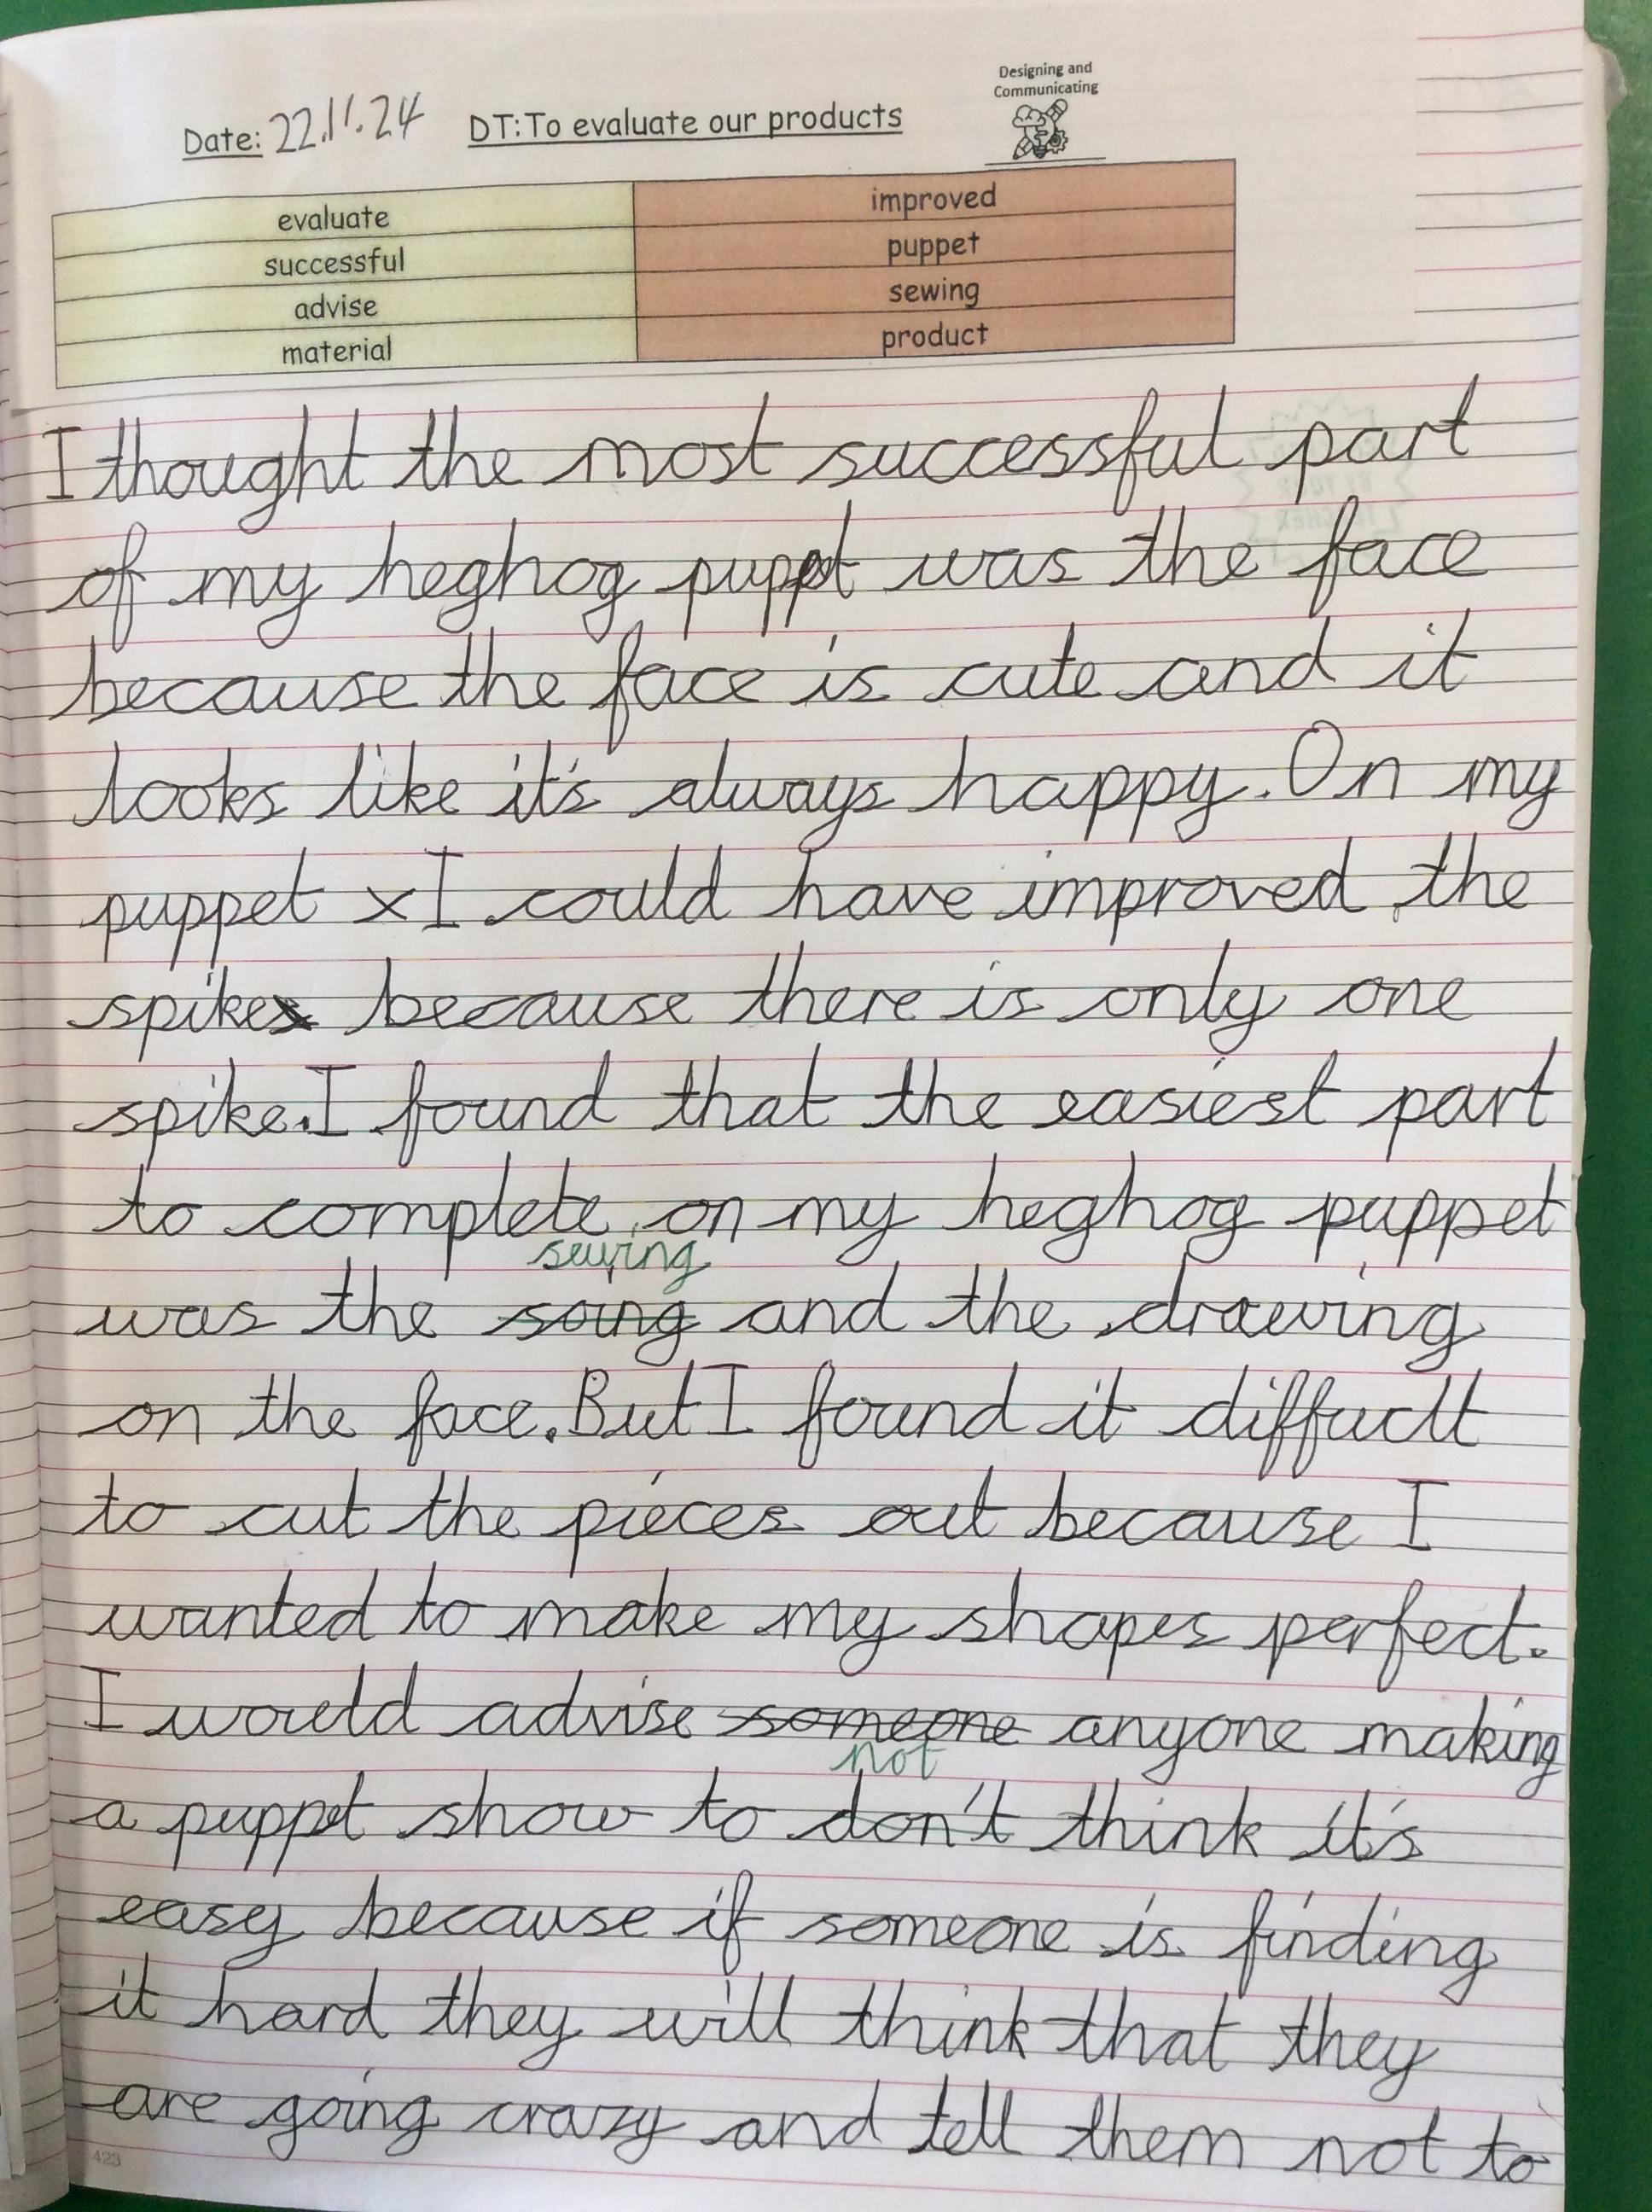 Designing and
Communicating
Date: 22.11.24 DT: To evaluate our products
evaluate improved
successful puppet
advise sewing
material product
I thought the most successful part
of my heghog puppet was the face
because the face is cute and it
looks like it's always happy. On my
puppet x I could have improved the
spikes because there is only one
spike. I found that the easiest part
to complete on my heghog puppet
sewing
was the soing and the drawing
on the face. But I found it difficult
to cut the pieces out because I
wanted to make my shapes perfect.
I would advise someone anyone making
not
a puppet show to don't think it's
easy because if someone is finding
it hard they will think that they
are going crazy and tell them not to
423